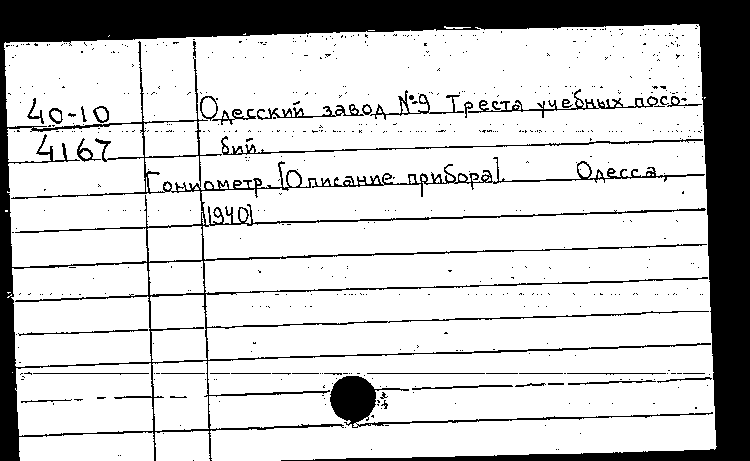 40-10
4167
Одесский завод №9 Треста учебных посо-
бий.
Гониометр. [Описание прибора]. Одесса,
[1940]